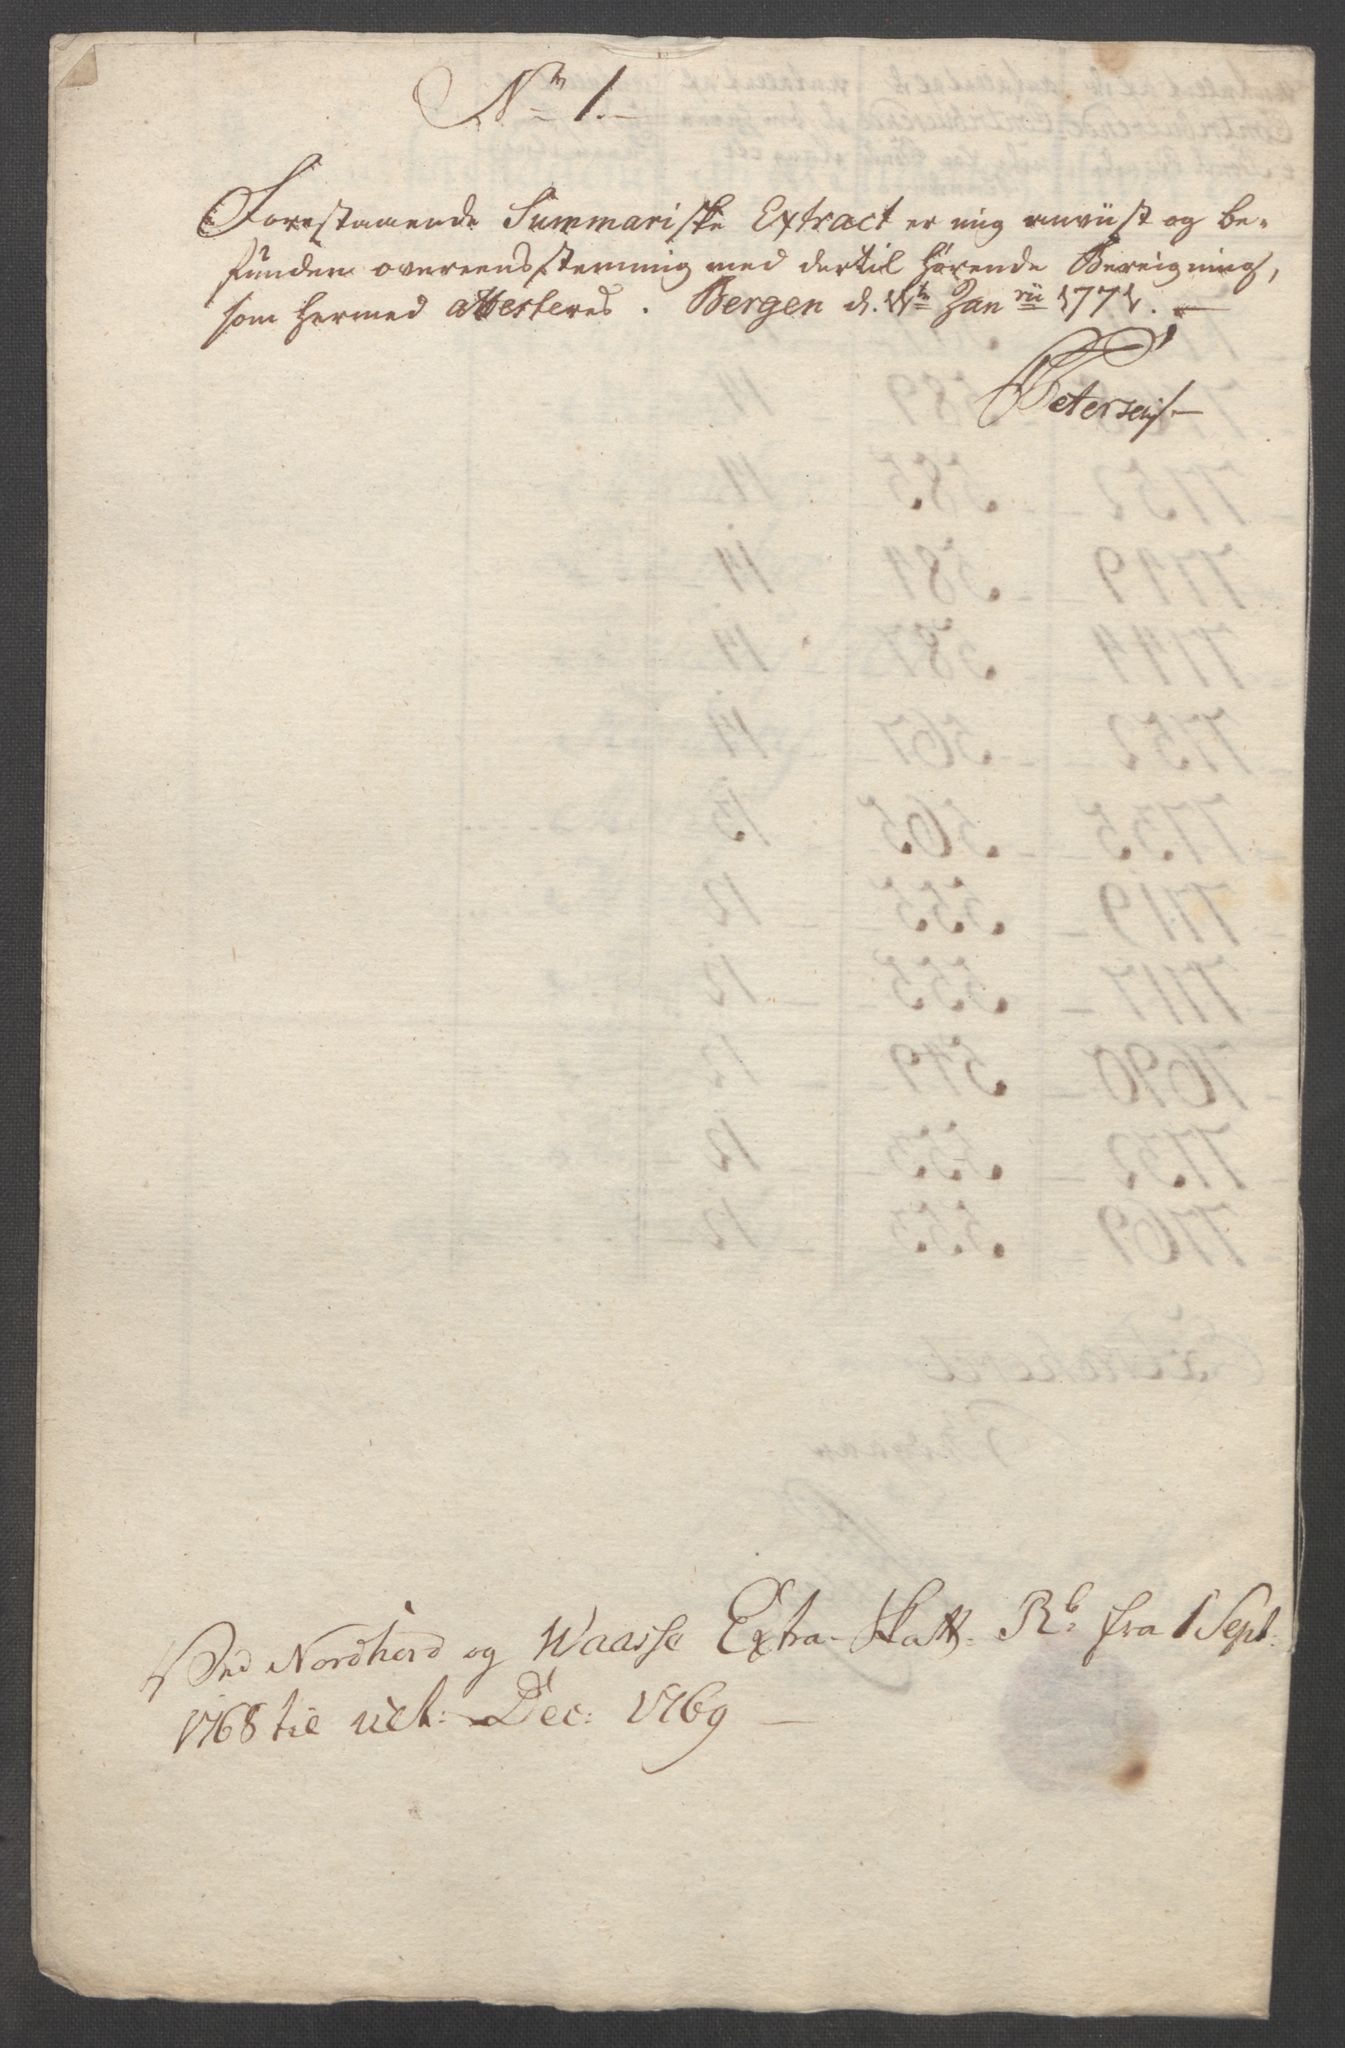 No 1.
Forestaaende Summariske Extract er mig anviist og be-
funden overeensstemmig med dertil hørende Bereigning,
som hermed attesteres. Bergen d. Janrii 1771.
Petersen
Ved Nordhord og Waasse Extra-Skatt. Rb: fra 1 Sept:
1768 til ult: Dec: 1769